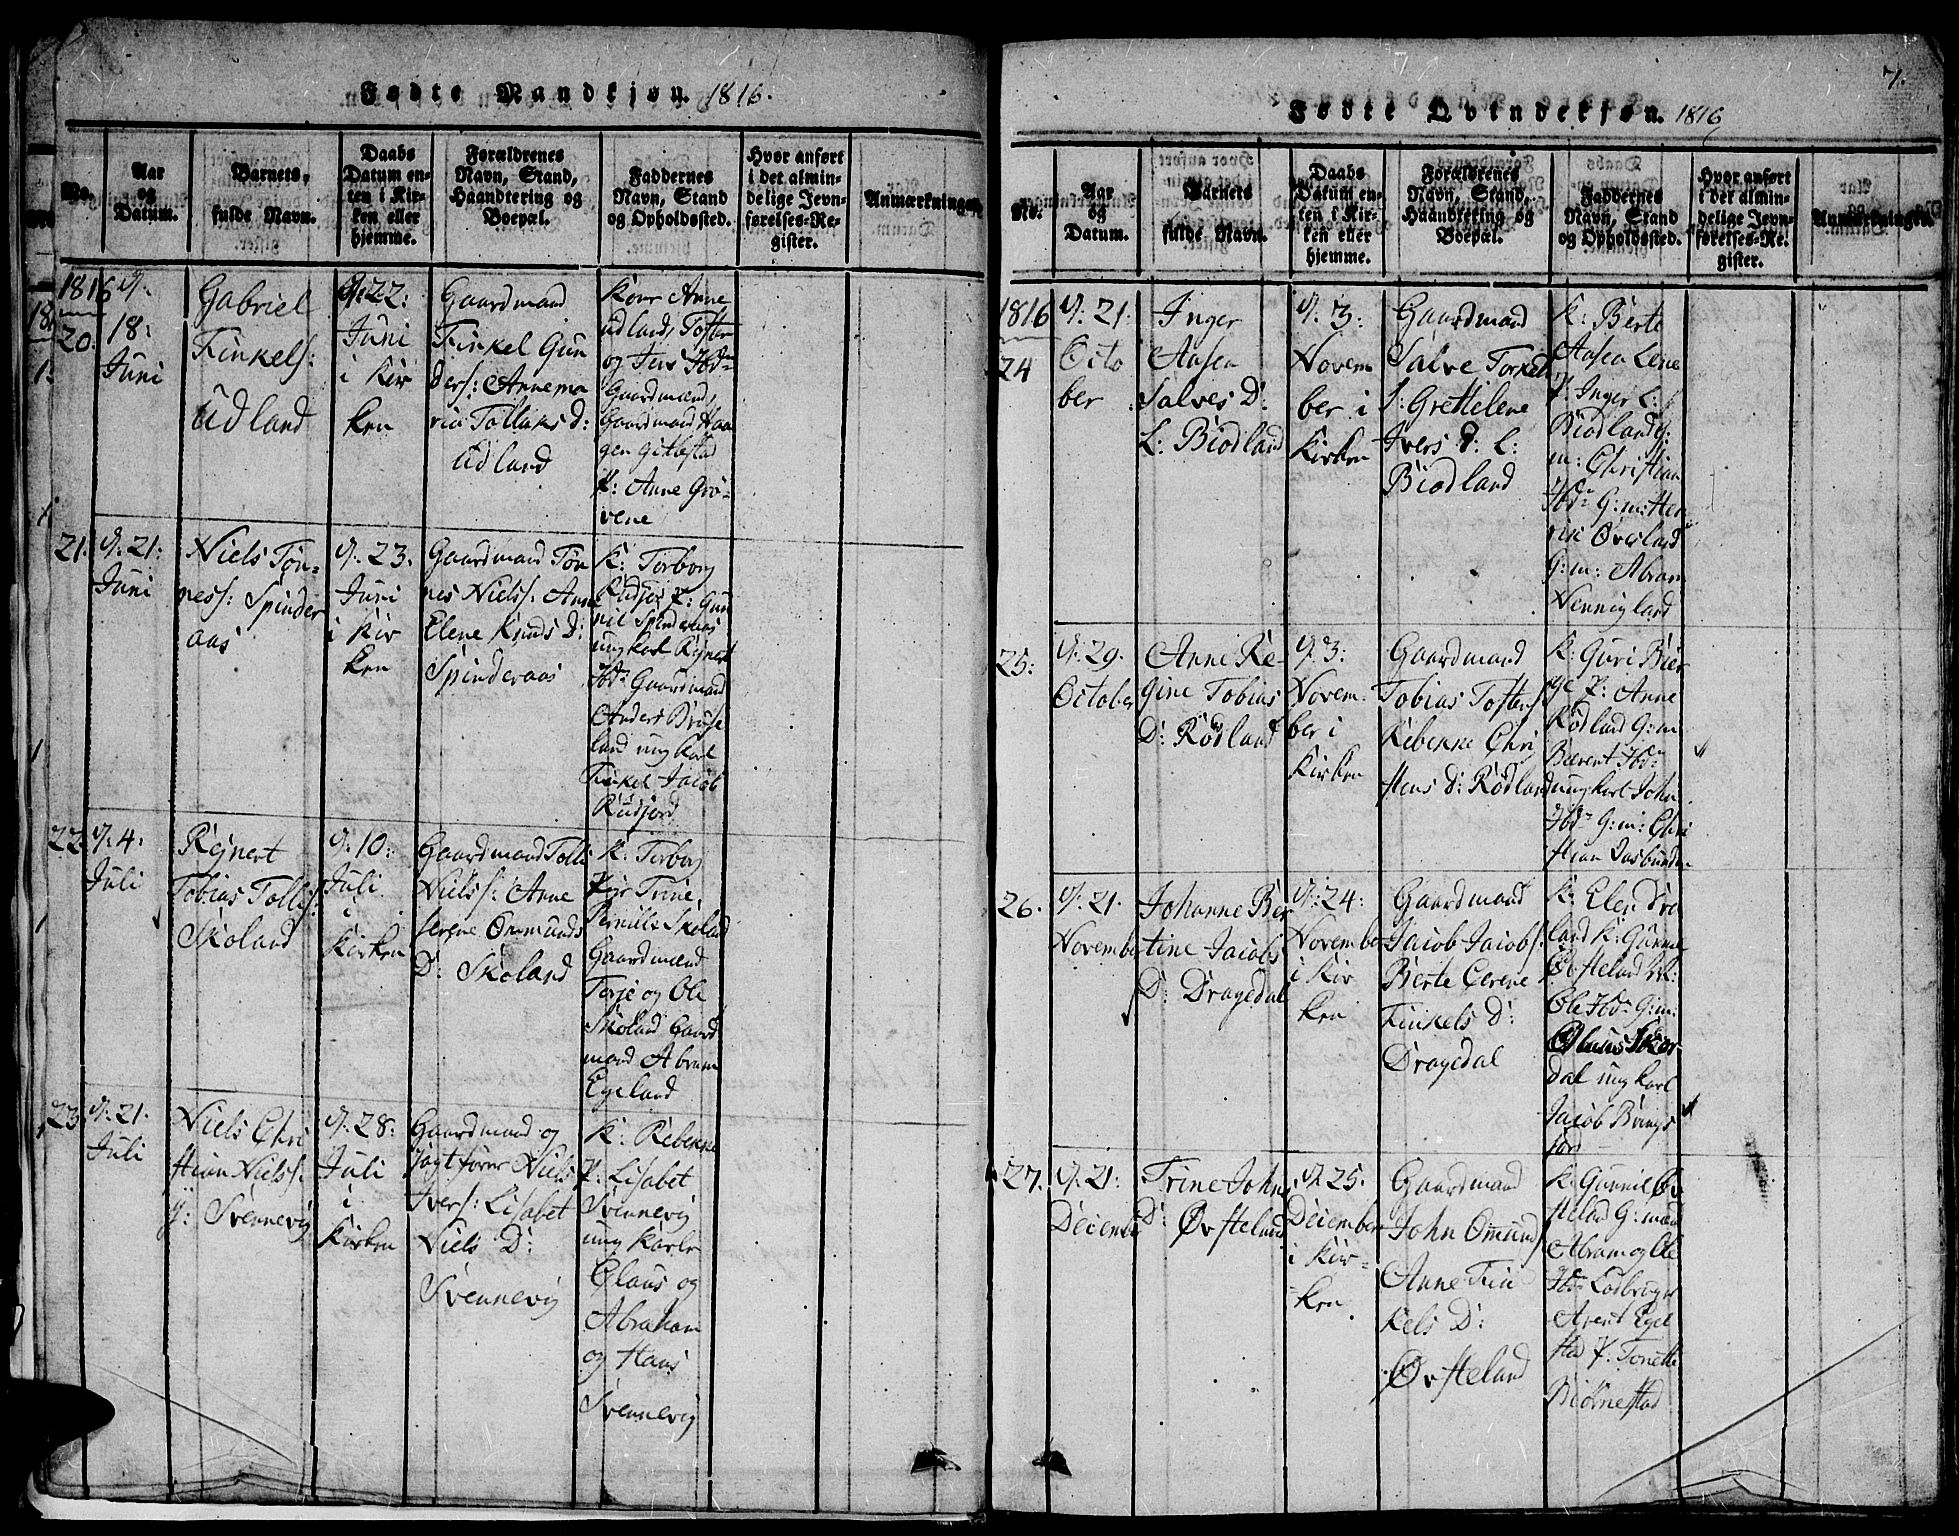 Fødte Mandkjøn. 1816.
No.
Aar
og
Datum.
Barnets,
fulde Navn.
Daabs
Datum en-
ten i Kir-
ken eller
hjemme.
Forældrenes
Navn, Stand,
Haandtering og
Boepæl.
Faddernes
Navn, Stand
og Opholdssted.
Hvor anført
i det almin-
delige Jevn-
førelses-Re-
gister.
Anmærkninger.
1816
20.
d.
18:
Juni
Gabriel
Finkels:
Udland
d. 22:
Juni
i Kir
ken
Gaardmand
Finkel Gun
ders: Annema
ria Tollaks D:
Udland
Kone Anne
udland, Tosten
og Jens Ibdm
Gaardmænd,
Gaardmand Haa
gen Gitlestad
P: Anne Grø-
vene
21.
d. 21:
Juni
Niels Tøn-
ness: Spinder
aas
d. 23.
Juni
i Kir
ken
Gaardmand Tøn
nes Niels: Anne
Elene Knuds D:
Spinderaas
K: Torborg
Rudjor P: Gun
nil Spinderaas
ungkarl Rejnert
Ibdm Gaardmand
Anders Bruse
land ungkarl
Finkel Jacob
Rudjord
22.
d. 4:
Juli
Rejnert
Tobias Tollis:
Skoland
d. 10:
Juli
i
Kirken
Gaardmand Tolli
Niels: Anne
Serene Ommunds
D: Skoland
K: Torborg
Piger Trine,
Pernille Skoland
Gaardmænd
Terje og Ole
Skoland Gaard
mand Abram
Egeland
23.
d. 21.
Juli
Niels Chri
stian Niels:
Svennevig
d. 28:
Juli
i
Kirken
Gaardmand og
Jagtfører Niels
Ivers: Lisabet
Niels D:
Svennevig
K: Rebekke
P. Lisabet
Svennevig
ung Karle
Olaus og
Abraham
og Hans
Svennevig
7.
Fødte Qvindekjøn. 1816
No.
Aar
og
Datum.
Barnets
fulde Navn.
Daabs
Datum en-
ten i Kir-
ken eller
hjemme.
Forældrenes
Navn, Stand,
Haandtering og
Boepæl.
Faddernes
Navn, Stand
og Opholdssted.
Hvor anført
i det almin-
delige Jevn-
førelses-Re-
gister.
Anmærkninger.
1816
24
d. 21:
Octo
ber
Inger
Aasen
Salves D:
L: Biodland
d. 3:
Novem
ber i
Kirken
Gaardmand
Salve Torkel
s: Grethelene
Ivers D: L:
Biodland
K: Berte
Aasen Lene
P. Inger L:
Biodland G:
m: Christian
Ibdm G:m: Hen
rik Øvrland
G:m: Abram
Nenningland
25:
d. 29.
October
Anne Re-
gine Tobias
D: Rødland
d. 3:
Novem-
ber i
Kirken
Gaardmand
Tobias Tostens:
Rebekke Chri
stens D: Rødland
K: Guri Bier
ge P: Anne
Rødland G:m
Bærent Ibdm
ungkarl John
Ibdm G:m: Chri
stian
26.
d. 21.
November
Johanne Ber
tine Jacobs
D: Dragedal
d: 24:
November
i Kir
ken
Gaardmand
Jacob Jacobs:
Berte Cerene
Finkels D:
Dragedal
K: Elen Dra
land K: Gunne
Øvsteland
Ole Ibdm G:m:
dal ungkarl
Jacob Brings
jord
27.
d. 21:
December
Trine Johns
D: Øvsteland
d. 25.
December
i Kir-
ken
Gaardmand
John Omunds
Anne Fin
kels D:
Øvsteland
K: Gunnil Øv
steland G:mænd
Abram og Ole
Ibdm
Avent Egel
stad P. Tonette
Biørnestad